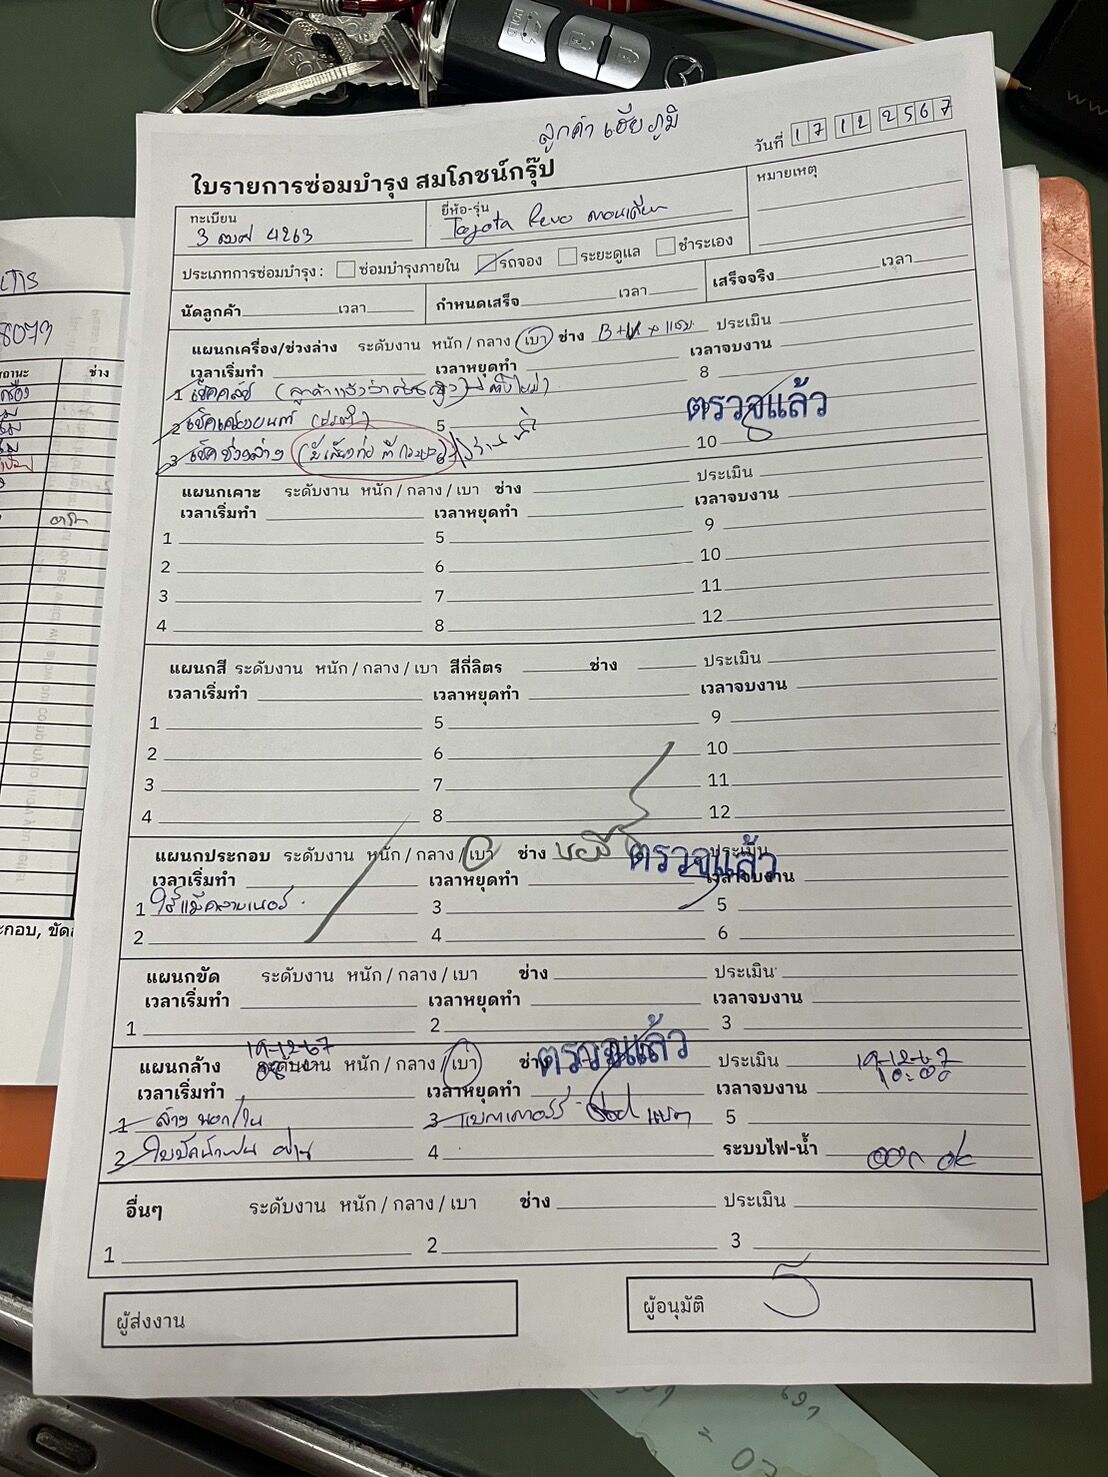 ลูกค้า เฮียภูมิ
วันที่ 17 12 2567
ใบรายการซ่อมบำรุง สมโภชน์กรุ๊ป
หมายเหตุ
ทะเบียน
ยี่ห้อ-รุ่น
4263
Toyota Revo ตอนเดียว
ประเภทการซ่อมบำรุง : ซ่อมบำรุงภายใน รถจอง ระยะดูแล ชำระเอง
นัดลูกค้า เวลา กำหนดเสร็จ เวลา เสร็จจริง เวลา
แผนกเครื่อง/ช่วงล่าง ระดับงาน หนัก / กลาง / เบา ช่าง ประเมิน
เวลาเริ่มทำ เวลาหยุดทำ เวลาจบงาน
1 เช็คคลัช (ลูกค้าแจ้งว่า 8
ตรวจแล้ว
2 เช็คเครื่องยนต์ 5
3 เช็คช่วงล่าง 10
แผนกเคาะ ระดับงาน หนัก / กลาง / เบา ช่าง ประเมิน
เวลาเริ่มทำ เวลาหยุดทำ เวลาจบงาน
1 5 9
2 6 10
3 7 11
4 8 12
แผนกสี ระดับงาน หนัก / กลาง / เบา สีกี่ลิตร ช่าง ประเมิน
เวลาเริ่มทำ เวลาหยุดทำ เวลาจบงาน
1 5 9
2 6 10
3 7 11
4 8 12
แผนกประกอบ ระดับงาน หนัก / กลาง / เบา ช่าง ตรวจแล้ว ประเมิน
เวลาเริ่มทำ เวลาหยุดทำ เวลาจบงาน
1 ใส่แม็คลายเนอร์ 3 5
2 4 6
แผนกขัด ระดับงาน หนัก / กลาง / เบา ช่าง ประเมิน
เวลาเริ่มทำ เวลาหยุดทำ เวลาจบงาน
1 2 3
19-12-67
แผนกล้าง ระดับงาน หนัก / กลาง / เบา ช่าง ตรวจแล้ว ประเมิน 19-12-67
เวลาเริ่มทำ เวลาหยุดทำ เวลาจบงาน 10:00
1 ล้าง นอก/ใน 3 แบตเตอร์รี่ 5
2 ใบปัดน้ำฝน 4 ระบบไฟ-น้ำ ok
อื่นๆ ระดับงาน หนัก / กลาง / เบา ช่าง ประเมิน
1 2 3
ผู้ส่งงาน
ผู้อนุมัติ
8073
ช่าง